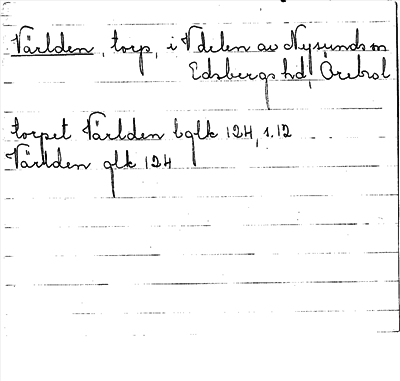 Världen, torp, i V delen av Nysunds sn
Edsbergs hd, Örebro l
torpet Världen bglk 124, 1.12
Världen glk 124